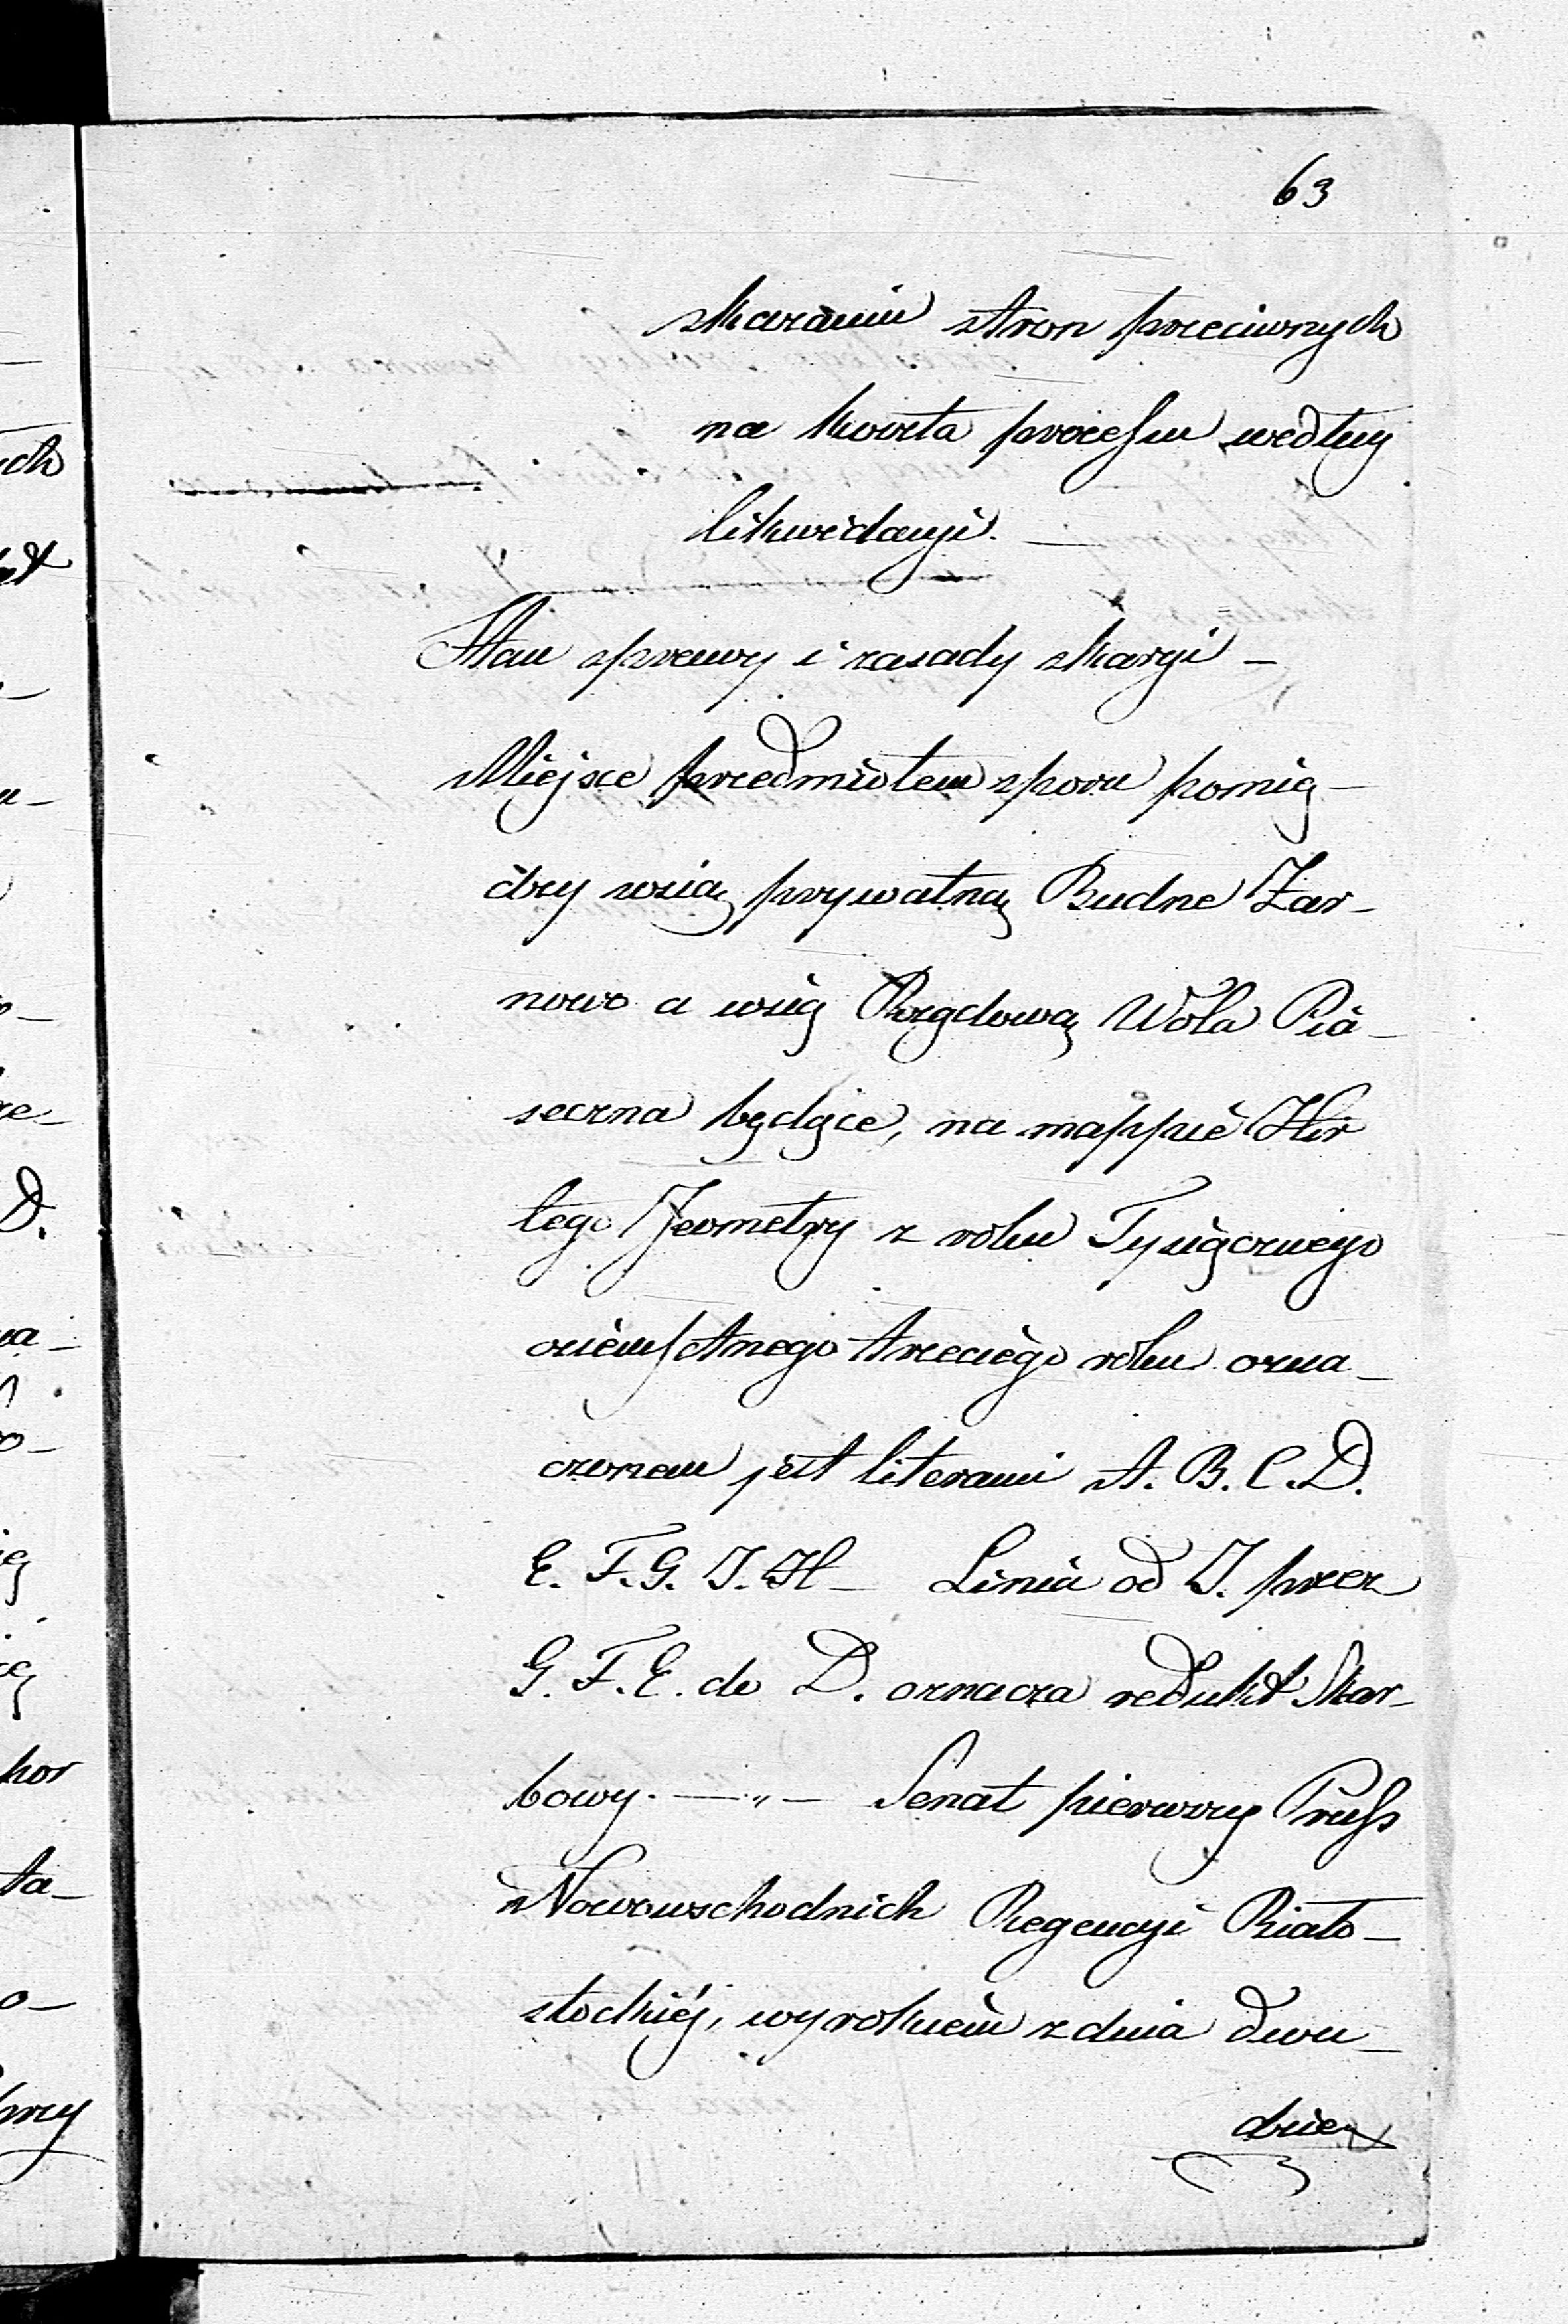 63
skazaniu stron przeciwnych
na koszta processu według
likwidacyi. —
Stan sprawy i zasady skargi —
Miejsce przedmiotem sporu pomię-
dzy wsią prywatną Budne Żar-
nowo a wsią Rządową Wola Pia-
seczna będące, na mappie Hir
tego Jeometry z roku Tysiącznego
ośiemsetnego trzeciego roku ozna-
czonem jest literami A. B. C. D.
E. F. G. J. H — Linia od J. przez
G. F. E. do D. oznacza redukt Skar-
bowy. — „ — Senat pierwszy Pruss
Nowowschodnich Regencyi Biało-
stockiéj, wyrokiem z dnia dwu-
dzies
ych
D.
kor
ta-